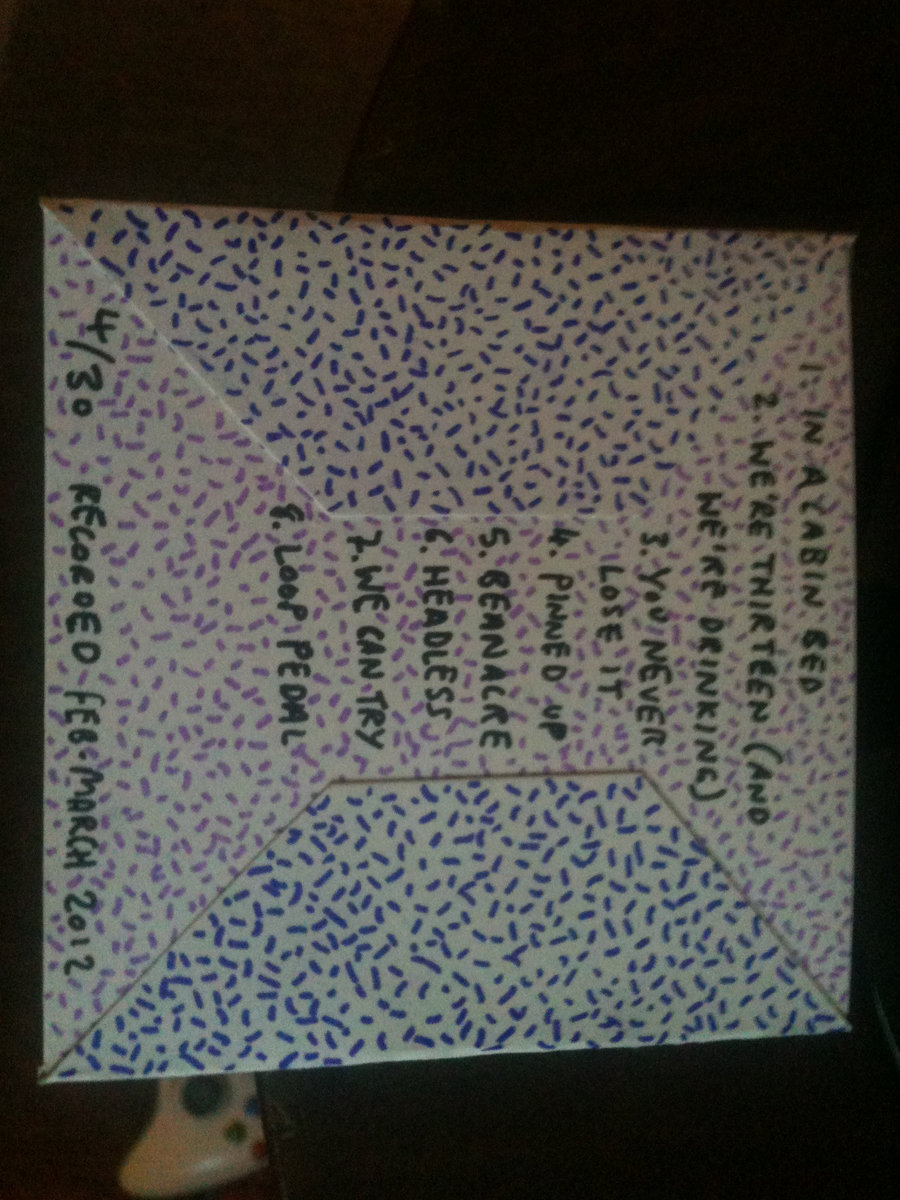 1. IN A CABIN BED
2. WE'RE THIRTEEN (AND
WE'RE DRINKING)
3. YOU NEVER
LOSE IT
4. PINNED UP
5. BEANACRE
6. HEADLESS
7. WE CAN TRY
8. LOOP PEDAL
4/30 RECORDED FEB-MARCH 2012